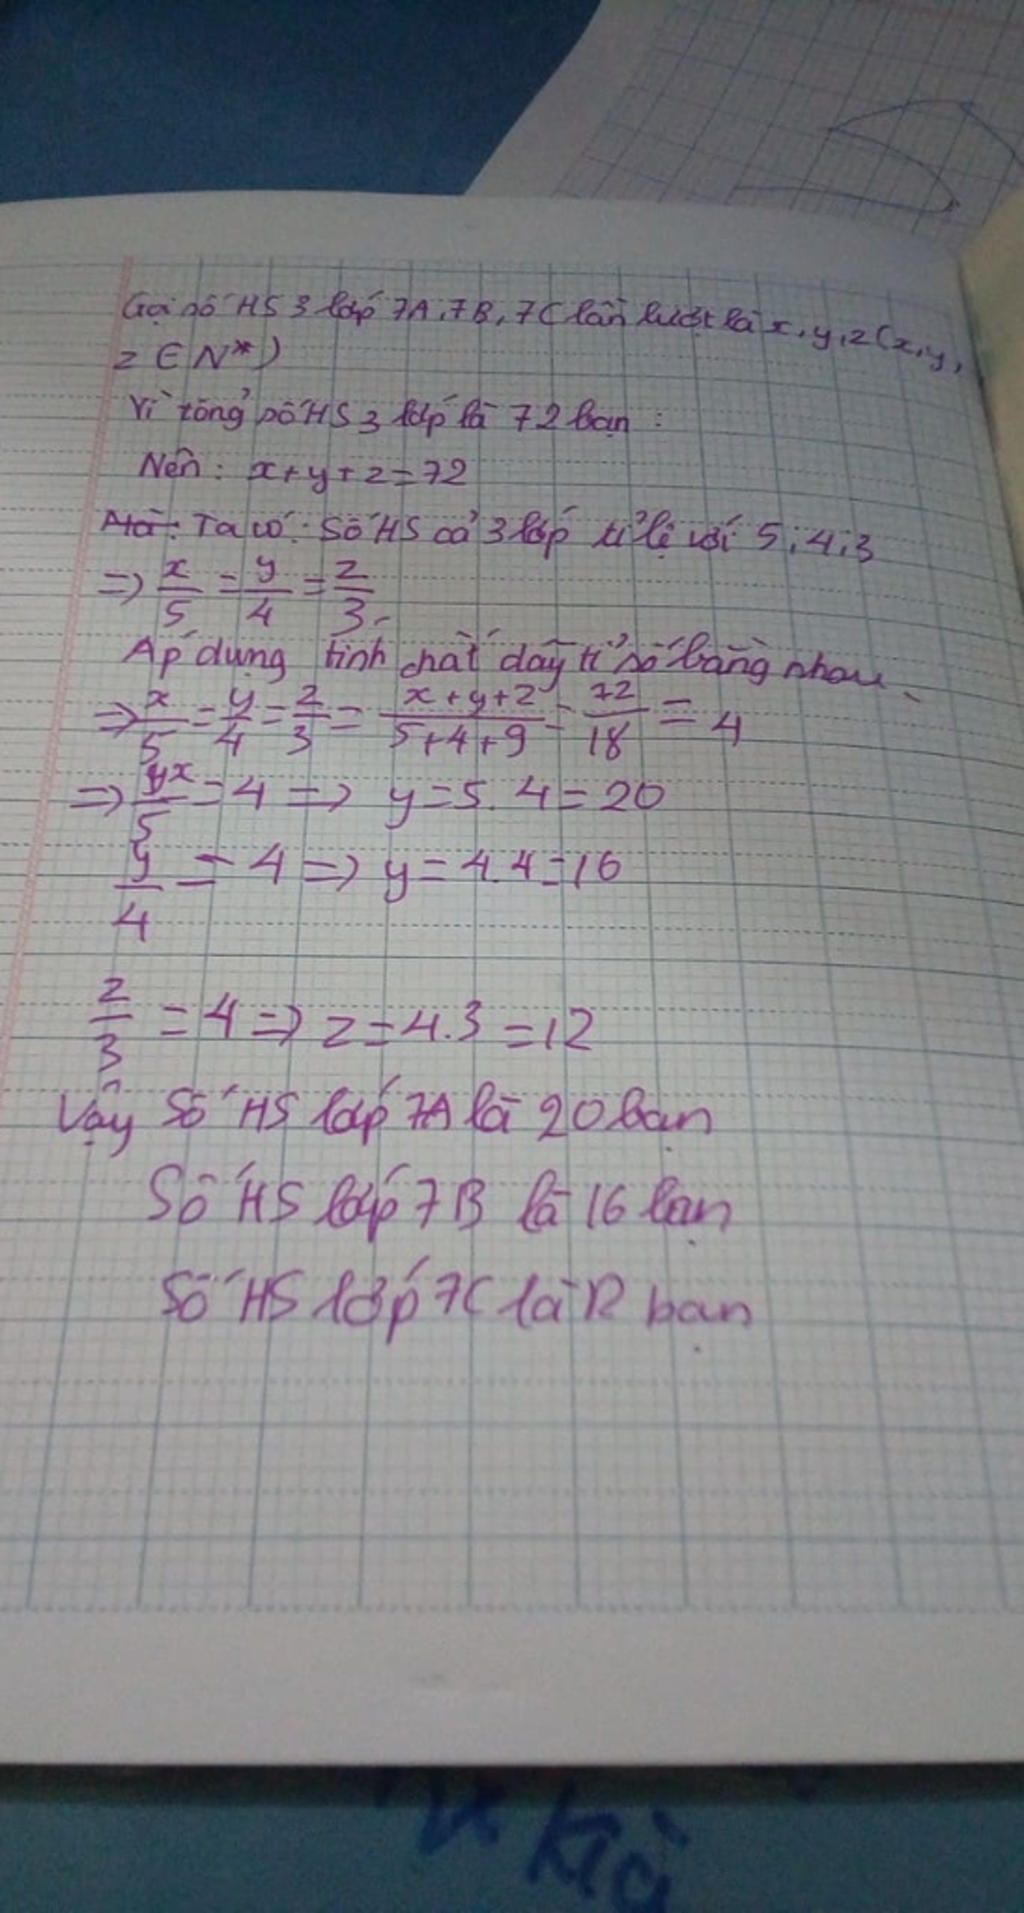 Gọi số HS 3 lớp 7A, 7B, 7C lần lượt là x, y, z (x, y,
z ∈ N*)
Vì tổng số HS 3 lớp là 72 bạn :
Nên : x + y + z = 72
Ta có : Số HS cả 3 lớp tỉ lệ với 5, 4, 3
=> x/5 = y/4 = z/3
Áp dụng tính chất dãy tỉ số bằng nhau
=> x/5 = y/4 = z/3 = x+y+z/5+4+9 = 72/18 = 4
=> x/5 = 4 => y = 5.4 = 20
y/4 = 4 => y = 4.4 = 16
z/3 = 4 => z = 4.3 = 12
Vậy Số HS lớp 7A là 20 bạn
Số HS lớp 7B là 16 bạn
Số HS lớp 7C là 12 bạn